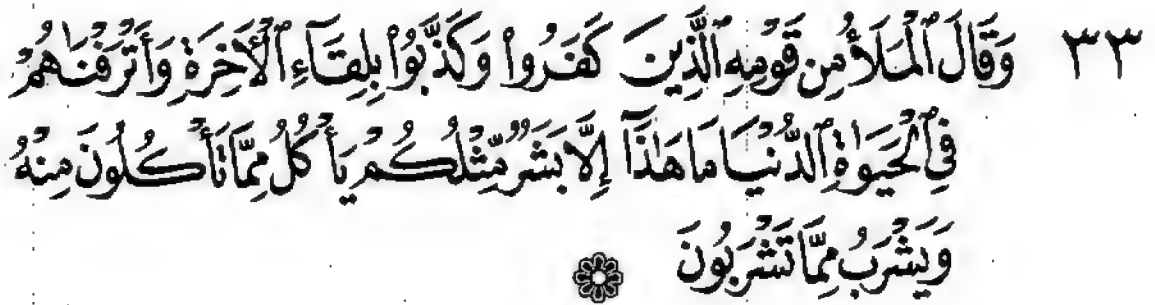 ٣٣ وَقَالَ ٱلْمَلَأُ مِن قَوْمِهِ ٱلَّذِينَ كَفَرُوا۟ وَكَذَّبُوا۟ بِلِقَآءِ ٱلْأَخِرَةِ وَأَتْرَفْنَاهُمْ
فِي ٱلْحَيَوٰةِ ٱلدُّنْيَا مَا هَٰذَآ إِلَّا بَشَرٌ مِّثْلُكُمْ يَأْكُلُ مِمَّا تَأْكُلُونَ مِنْهُ
وَيَشْرَبُ مِمَّا تَشْرَبُونَ